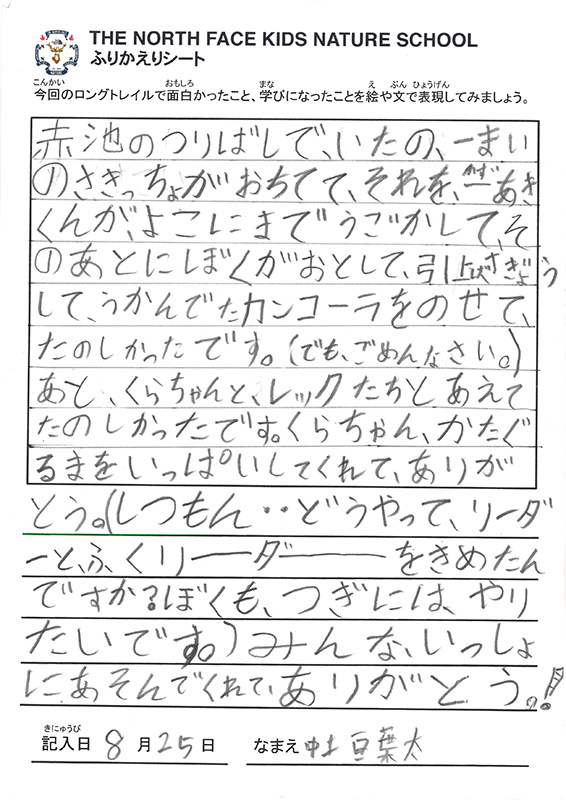 THE NORTH FACE KIDS NATURE SCHOOL
ふりかえりシート
こんかい おもしろ まな え ぶん ひょうげん
今回のロングトレイルで面白かったこと、学びになったことを絵や文で表現してみましょう。
赤池のつりばしで、いたの、一まい
のさきっちょがおちてて、それを、かず一あき
くんが、よこにまでうごかして、そ
のあとにぼくがおとして、引上げさぎょう
して、うかんでたカンコーラをのせて、
たのしかったです。(でも、ごめんなさい。)
あと、くらちゃんと、レックたちとあえて
たのしかったです。くらちゃん、かたぐ
るまをいっぱいしてくれて、ありが
とう。(しつもん・・どうやって、リーダ
ーと、ふくリーダーをきめたん
ですか?ぼくも、つぎには、やり
たいです。)みんな、いっしょ
にあそんでくれて、ありがとう。!
きにゅうび
記入日 8月25日 なまえ 中土 亘葉太